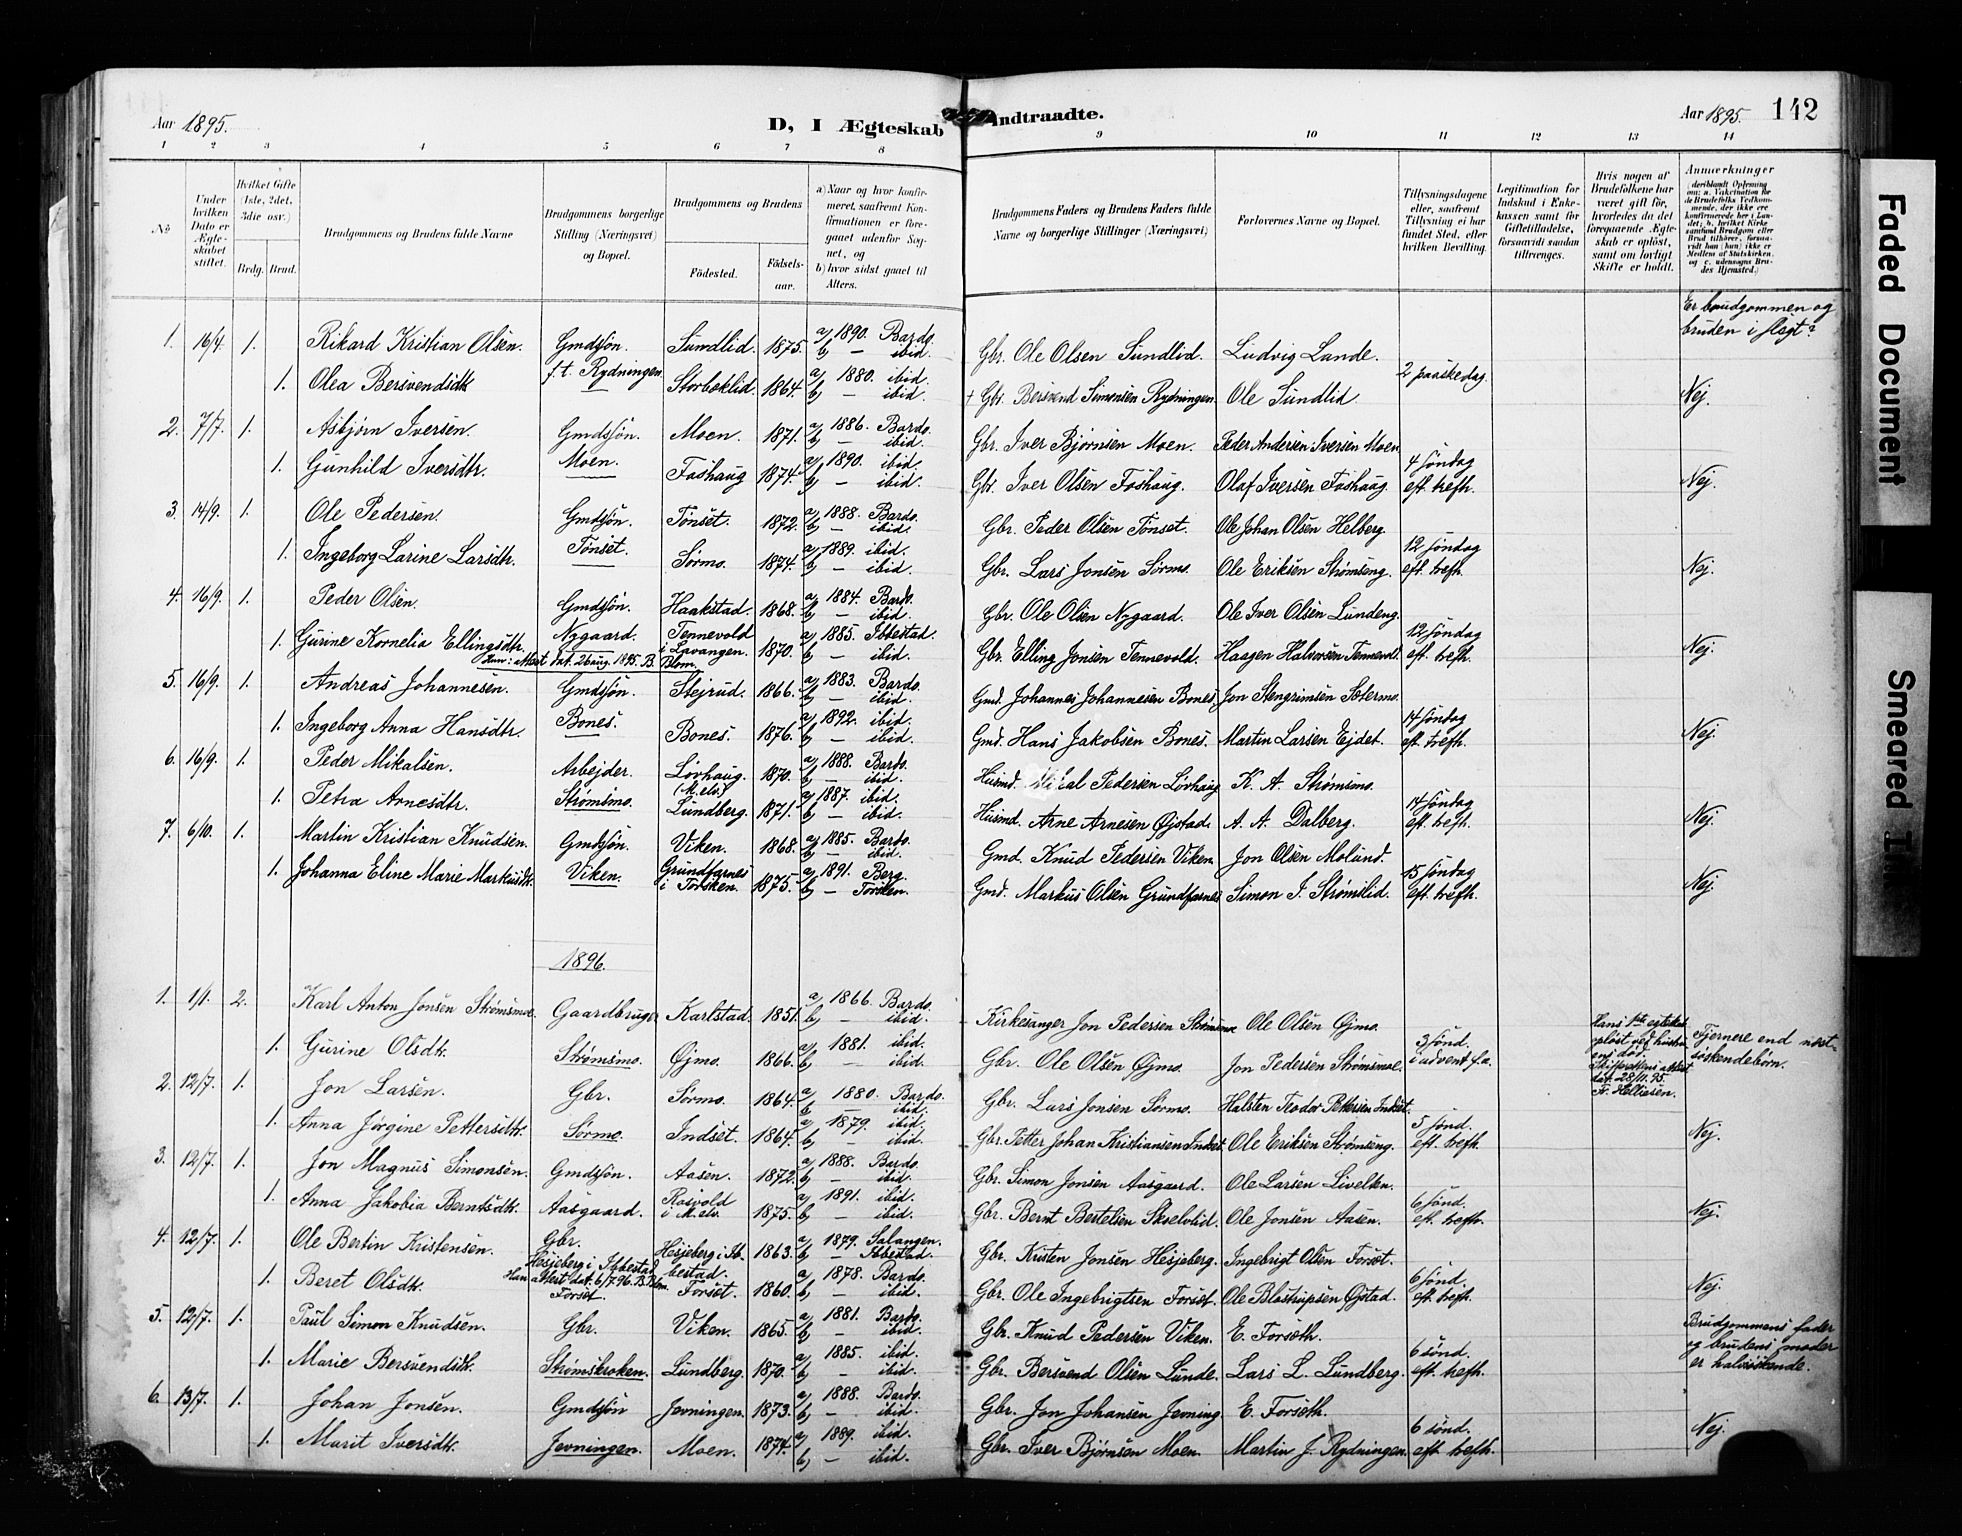 Aar 1895.
D, I Ægteskab Indtraadte.
Aar 1895. 142
1 2 3 4 5 6 7 8 9 10 11 12 13 14
No
Under hvilken Dato er Ægteskabet stiftet.
Hvilket Gifte (1ste, 2det, 3die osv.)
Brdg. Brud.
Brudgommens og Brudens fulde Navne
Brudgommens borgerlige Stilling (Næringsvei) og Bopæl.
Brudgommens og Brudens
Fødested. Fødselsaar.
a) Naar og hvor konfirmeret, saafremt Konfirmationen er foregaaet udenfor Sognet, og b) hvor sidst gaaet til Alters.
Brudgommens Faders og Brudens Faders fulde Navne og borgerlige Stillinger (Næringsvei)
Forlovernes Navne og Bopæl.
Tillysningsdagene eller, saafremt Tillysning ei har fundet Sted, efter hvilken Bevilling.
Legitimation for Indskud i Enkekassen samt for Giftetilladelse, forsaavidt saadan tiltrænges.
Hvis nogen af Brudefolkene har været gift før, hvorledes da det foregaaende Ægteskab er opløst, samt om lovligt Skifte er holdt.
Anmærkninger (deriblandt Oplysning om: a. Vakcination for de Brudefolks Vedkommende, der ikke ere konfirmerede her i Landet; b. hvilket Kirkesamfund Brudgom eller Brud tilhører, forsaavidt han (hun) ikke er Medlem af Statskirken, og c. udensogns Brudes Hjemsted.)
Er brudgommen og bruden i slægt?
1. 16/4 1. Rikard Kristian Olsen. Gmdsøn. Sundlid. 1875. a) 1890. Bardo. b) — ibid. Gbr. Ole Olsen Sundlid. Ludvig Lande.
1. Olea Bersvendsdtr. f.t. Rydningen. Storbæklid. 1864. a) 1880. ibid. b) — ibid. + Gbr. Bersvend Simonsen Rydningen. Ole Sundlid. 2 paaskedag. Nej.
2. 7/7. 1. Asbjørn Iversen. Gmdsøn. Moen. 1871. a) 1886. Bardo. b) — ibid. Gbr. Iver Bjørnsen Moen. Peder Andersen Iversen Moen.
1. Gunhild Iversdtr. Moen. Foshaug 1874. a) 1890. ibid. b) — ibid. Gbr. Iver Olsen Foshaug. Olaf Iversen Foshaug. 4 søndag eft. trefh. Nej.
3. 14/9. 1. Ole Pedersen. Gmdsøn. Tønset. 1872. a) 1888. Bardo. b) — ibid. Gbr. Peder Olsen Tønset. Ole Johan Olsen Helberg
1. Ingeborg Larine Larsdtr. Tønset. Sørmo. 1874. a) 1889. ibid. b) — ibid. Gbr. Lars Jonsen Sørmo. Ole Eriksen Strømseng. 12 søndag eft. trefh. Nej.
4. 16/9. 1. Peder Olsen. Gmdsøn. Haakstad. 1868. a) 1884. Bardo. b) — ibid. Gbr. Ole Olsen Nygaard. Ole Iver Olsen Lundeng.
1. Gurine Kornelia Ellingsdtr. Nygaard. Tennevold i Lavangen. 1870. a) 1885. Ibbestad. b) — ibid. Gbr. Elling Jonsen Tennevold. Haagen Halvorsen Tennevol. 12 søndag eft. trefh. Nej.
Hun: attest dat. 26 aug. 1895. B. Blom.
5. 16/9. 1. Andreas Johannesen. Gmdsøn. Stejrud. 1866. a) 1883. Bardo. b) — ibid. Gmd. Johannes Johannesen Bones. Jon Stengrimsen Sætermo.
1. Ingeborg Anna Hansdtr. Bones. Bones. 1876. a) 1892. ibid. b) — ibid. Gmd. Hans Jakobsen Bones. Martin Larsen Ejdet. 14 søndag eft. trefh. Nej.
6. 16/9. 1. Peder Mikalsen. Arbejder. Løvhaug. (M.elv.) 1870. a) 1888. Bardo. b) — ibid. Husmd. Mikal Pedersen Løvhaug K. A. Strømsmo.
1. Petra Arnesdtr. Strømsmo. Lundberg. 1871. a) 1887. ibid. b) — ibid. Husmd. Arne Arnesen Øjstad. A. A. Dalberg. 14 søndag eft. trefh. Nej.
7. 6/10. 1. Martin Kristian Knudsen. Gmdsøn. Viken. 1868. a) 1885. Bardo. b) — ibid. Gmd. Knud Pedersen Viken. Jon Olsen Molund.
1. Johanna Eline Marie Markusdtr. Viken. Grundfarnes i Torsken. 1875. a) 1891. Berg. b) — Torsken. Gmd. Markus Olsen Grundfarnes Simon J. Strømslid. 15 søndag eft. trefh. Nej.
1896.
1. 1/1. 2. Karl Anton Jonsen Strømsmoe. Gaardbruger Karlstad. 1851. a) 1866. Bardo. b) — ibid. Kirkesanger Jon Pedersen Strømsmoe Ole Olsen Øjmo.
1. Gurine Olsdtr. Strømsmo. Øjmo. 1866. a) 1881. ibid. b) — ibid. Gbr. Ole Olsen Øjmo. Jon Pedersen Strømsmoe. 3 sønd. i advent f.a. Hans 1ste egteskab opløst ved hustruens død. Skifterettens attest dat. 28/11.95. Fr. Helliesen. Fjernere end næstsøskendebørn.
2. 12/7. 1. Jon Larsen. Gbr. Sørmo. 1864. a) 1880. Bardo. b) — ibid. Gbr. Lars Jonsen Sørmo. Halsten Teodor Pettersen Indset.
1. Anna Jørgine Pettersdtr. Sørmo. Indset. 1864. a) 1879. ibid. b) — ibid. Gbr. Petter Johan Kristiansen Indset. Ole Eriksen Strømseng. 5 sønd. eft. trefh. Nej.
3. 12/7. 1. Jon Magnus Simonsen. Gmdsøn. Aasen. 1872. a) 1888. Bardo. b) — ibid. Gbr. Simon Jonsen Aasgaard. Ole Larsen Livelten.
1. Anna Jakobia Berntsdtr. Aasgaard. Rosvold i M.elv. 1875. a) 1891. ibid. b) — ibid. Gbr. Bernt Bertelsen Skoelvlid. Ole Jonsen Aasen. 6 sønd. eft. trefh. Nej.
4. 12/7. 1. Ole Bertin Kristensen. Gbr. Hesjeberg i Ibbestad Hesjeberg i Ibbestad. 1863. a) 1879. Salangen. b) — Ibbestad. Gbr. Kristen Jonsen Hesjeberg. Ingebrigt Olsen Forset.
Han attest dat. 6/7 96. B. Blom.
1. Beret Olsdtr. Forset. Forset. 1860. a) 1878. Bardo. b) — ibid. Gbr. Ole Ingebrigtsen Forset. Ole Blostrupsen Øjstad. 6 sønd. eft. trefh. Nej.
5. 12/7. 1. Paul Simon Knudsen. Gbr. Viken. 1865. a) 1881. Bardo. b) — ibid. Gbr. Knud Pedersen Viken. E. Forseth.
1. Marie Bersvendsdtr. Strømskroken. Lundberg. 1870. a) 1885. ibid. b) — ibid. Gbr. Bersvend Olsen Lunde. Lars L. Lundberg. 6 sønd. eft. trefh. Brudgommens fader og brudens moder er halvsøskende.
6. 13/7. 1. Johan Jonsen. Gmdsøn Jevningen. 1873. a) 1888. Bardo. b) — ibid. Gbr. Jon Johansen Jevning. E. Forseth.
1. Marit Iversdtr. Jevningen. Moen. 1874. a) 1889. ibid. b) — ibid. Gbr. Iver Bjørnsen Moen. Martin J. Rydningen. 6 sønd. eft. trefh. Nej.
Faded Document
Smeared